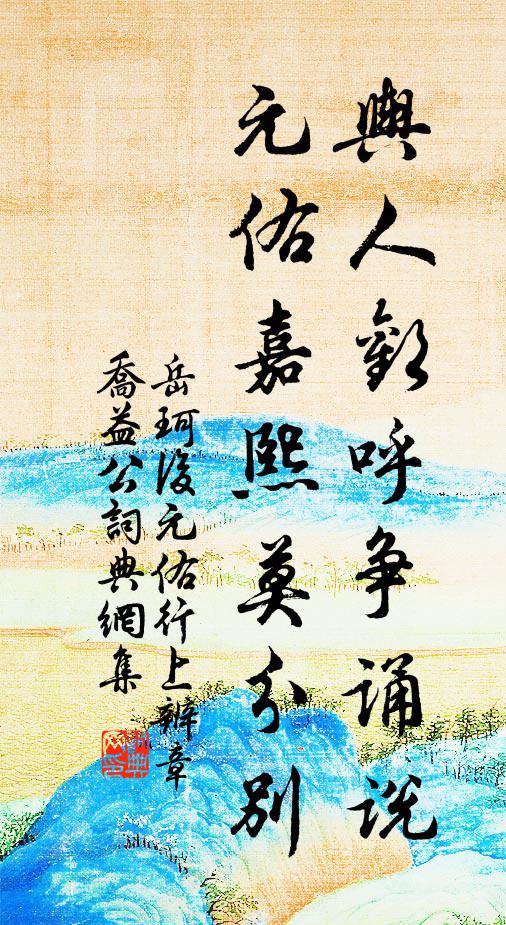 輿人歡呼争誦説
元佑嘉熙莫分別
岳珂後元佑行上辨章
喬益公詞典網集